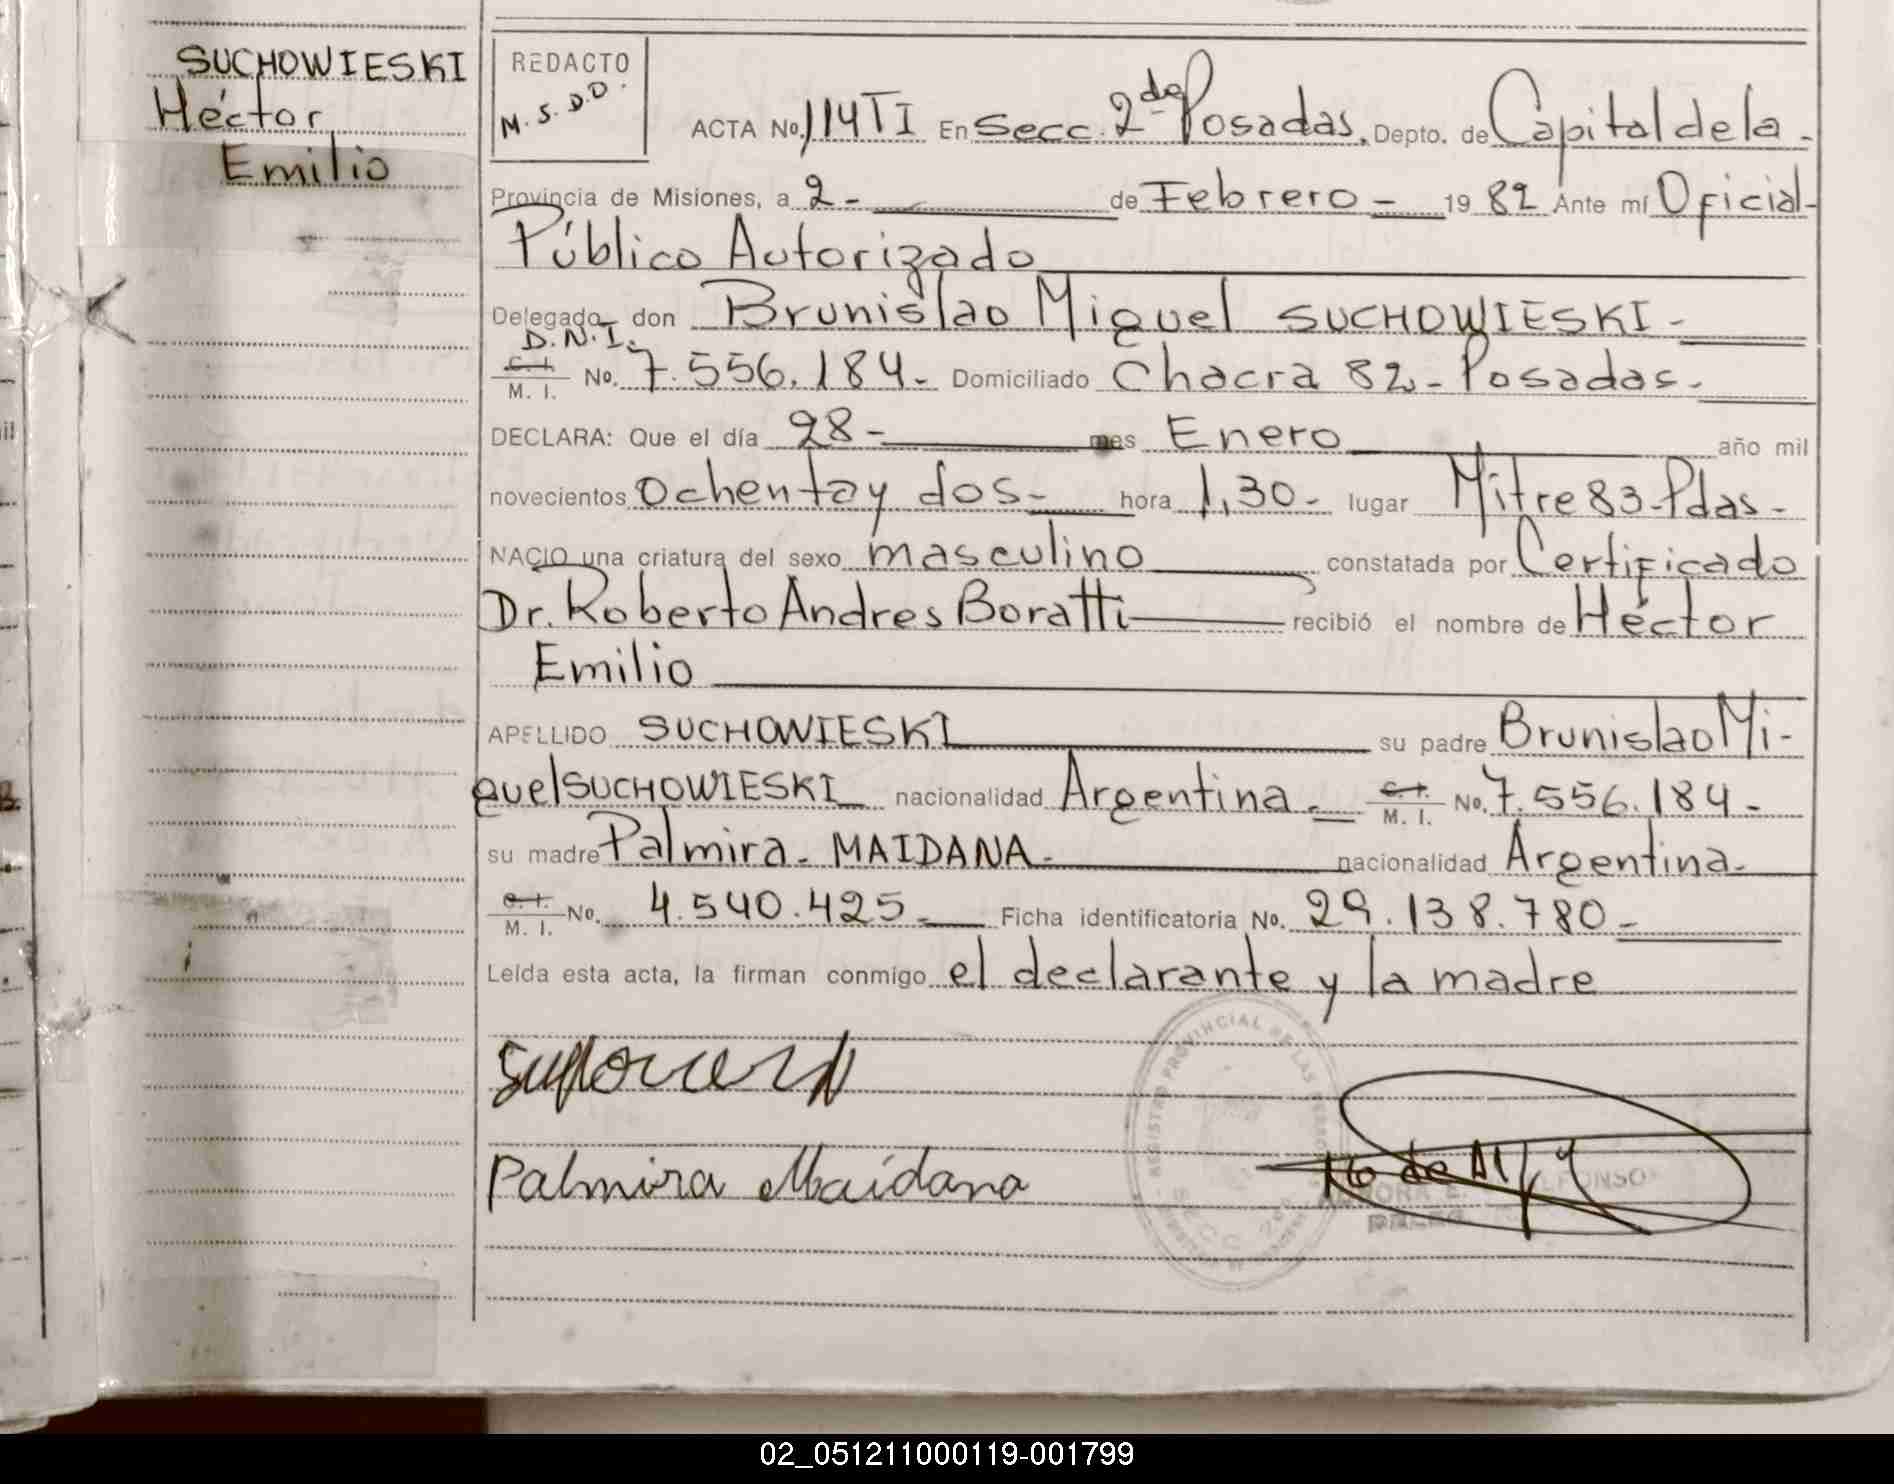 SUCHOWIESKI
Héctor
Emilio
REDACTO
M.S.D.D.
ACTA No. 114 TI En Secc. 2da Posadas. Depto. de Capital de la -
Provincia de Misiones, a 2 - de Febrero - 19 82 Ante mí Oficial -
Público Autorizado
Delegado, don Brunislao Miguel SUCHOWIESKI -
D.N.I.
C. I.
M. I. No. 7.556.184 - Domiciliado Chacra 82 - Posadas -
DECLARA: Que el día 28 - mes Enero año mil
novecientos ochenta y dos - hora 1,30 - lugar Mitre 83 - Pdas -
NACIO una criatura del sexo masculino constatada por Certificado
Dr. Roberto Andres Boratti recibió el nombre de Héctor
Emilio
APELLIDO SUCHOWIESKI su padre Brunislao Mi-
guel SUCHOWIESKI nacionalidad Argentina - C. I. M. I. No. 7.556.184 -
su madre Palmira - MAIDANA - nacionalidad Argentina -
C. I. M. I. No. 4.540.425 - Ficha identificatoria No. 29.138.780 -
Leída esta acta, la firman conmigo el declarante y la madre
Palmira Maidana
REGISTRO PROVINCIAL DE LAS PERSONAS
SECC. 2da
02_051211000119-001799